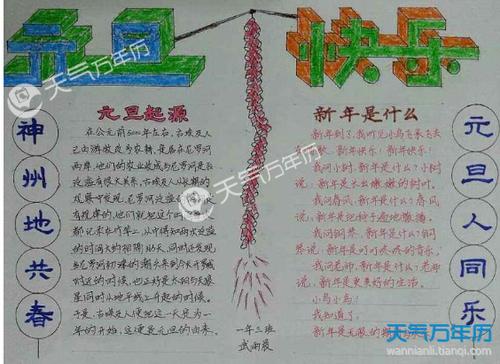 元旦 快乐
神州地共春
元旦起源
在公元前5000年左右,古埃及人已
由游牧改为农耕,定居在尼罗河
两岸,他们的农业收成与尼罗河是否
泛滥有很大关系。古埃及人从长期的
观察中发现,尼罗河泛滥的时间是
有规律的,他们就把这个时间
都记录在竹竿上,从中得知两次泛滥
的时间大约相隔365天,同时还发现,
当尼罗河初涨的潮头来到今天开罗城
附近的时候,也正好是太阳与天狼
星同时从地平线上升起的时候。
于是,古埃及人便把这一天定为一
年的开始,这便是元旦的由来。
一年三班
武雨晨
新年是什么
新年到了,我听见小鸟飞来飞去
新年快乐!新年快乐!
我问小树,新年是什么?小树
说:新年是长出嫩嫩的树叶。
我问春风,新年是什么?春风
说:新年是把种子
我问钢琴,新年是什么?钢琴
说:新年是叮叮咚咚的音乐。
我问老师,新年是什么?老师
说:新年是更美好的生活。
小鸟小鸟!
我知道了,
新年是无限的
元旦人同乐
天气万年历
天气万年历
天气万年历
天气万年历
wannianli.tianqi.com